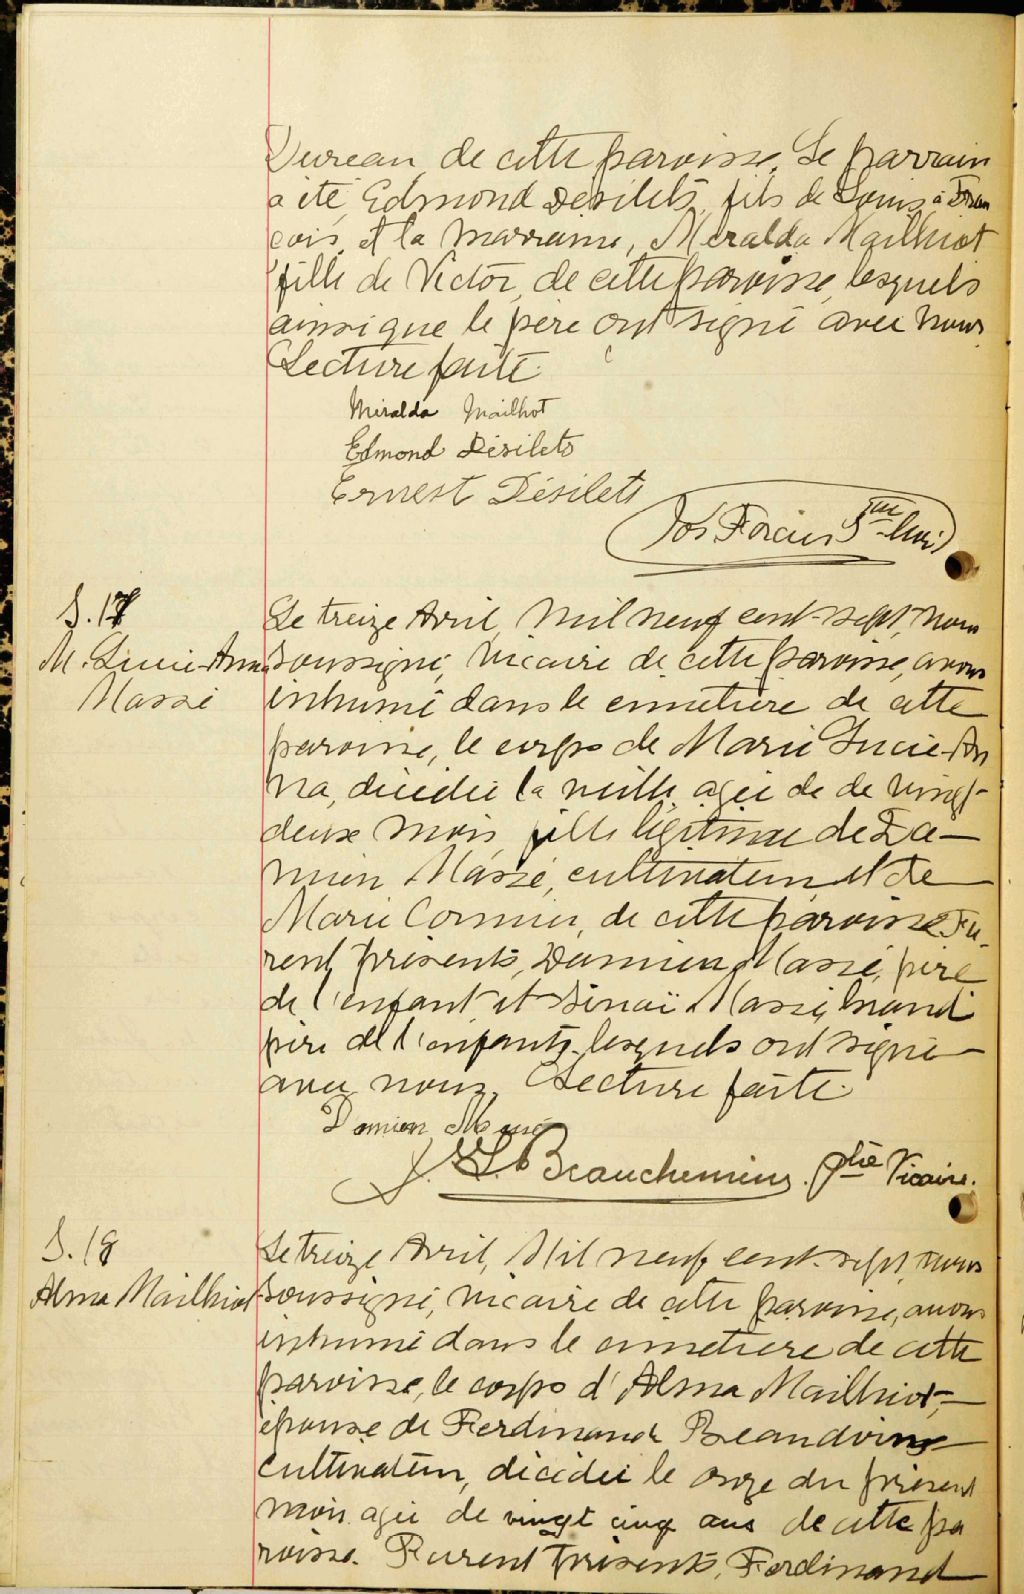 Dureau, de cette paroisse. Le parrain
a été Edmond Désilets, fils de Louis à Fran
çois, et la marraine, Méralda Mailhiot
fille de Victor, de cette paroisse, lesquels
ainsi que le père ont signé avec nous.
Lecture faite.
Miralda Mailhot
Edmond Désilets
Ernest Désilets
Jos Forcier
S. 17
M. Lucie-Anna
Massé
Le treize Avril, mil neuf cent-sept, nous
soussigné, vicaire de cette paroisse, avons
inhumé dans le cimetière de cette
paroisse, le corps de Marie Lucie-An
na, décédée la veille, agée de de vingt-
deux mois, fille légitime de Da-
mien Massé, cultivateur, et de
Marie Cormier, de cette paroisse. Fu-
rent présents, Damien Massé, père
de l'enfant et Sinaï Massé, Grand
père de l'enfant, lesquels ont signé
avec nous. Lecture faite.
Damien Massé
Beauchemin, Ptre Vicaire.
S. 18
Alma Mailhiot
Le treize Avril, Mil neuf cent-sept, nous
soussigné, vicaire de cette paroisse, avons
inhumé dans le cimetière de cette
paroisse, le corps d'Alma Mailhiot,
épouse de Ferdinand Beaudoin
cultivateur, décédée le onze du présent
mois agée de vingt cinq ans de cette pa
roisse. Furent présents, Ferdinand